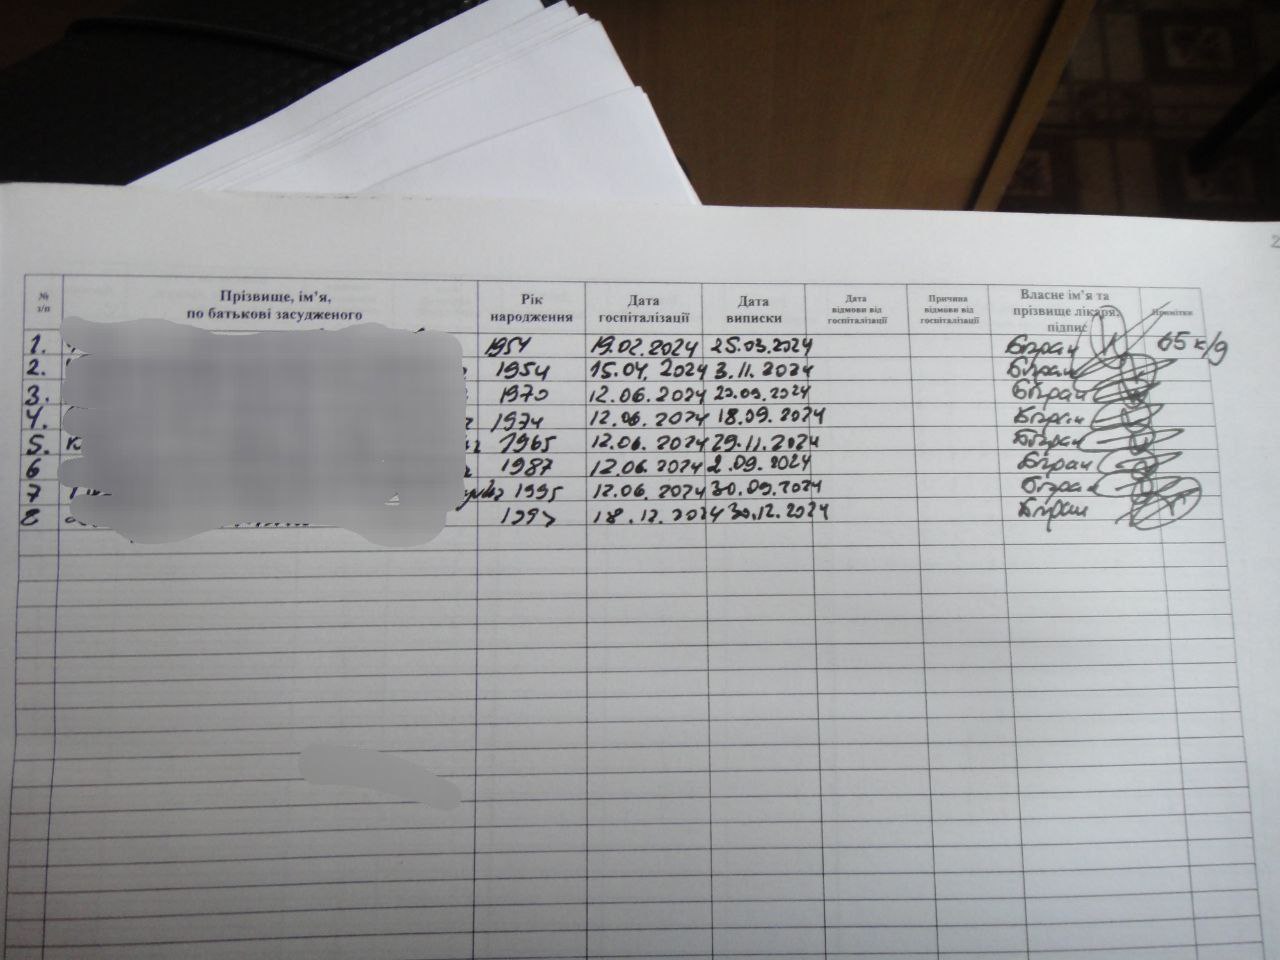 № з/п Прізвище, ім’я, по батькові засудженого Рік народження Дата госпіталізації Дата виписки Дата відмови від госпіталізації Причина відмови від госпіталізації Власне ім’я та прізвище лікаря, підпис Примітки
1. 1951 19.02.2024 25.03.2024 65 к/д
2. 1954 15.04.2024 3.11.2024
3. 1970 12.06.2024
4. 1974 12.06.2024 18.09.2024
5. 1965 12.06.2024 29.11.2024
6 1987 12.06.2024 2.09.2024
7 1995 12.06.2024 30.09.2024
8 18.12.2024 30.12.2024